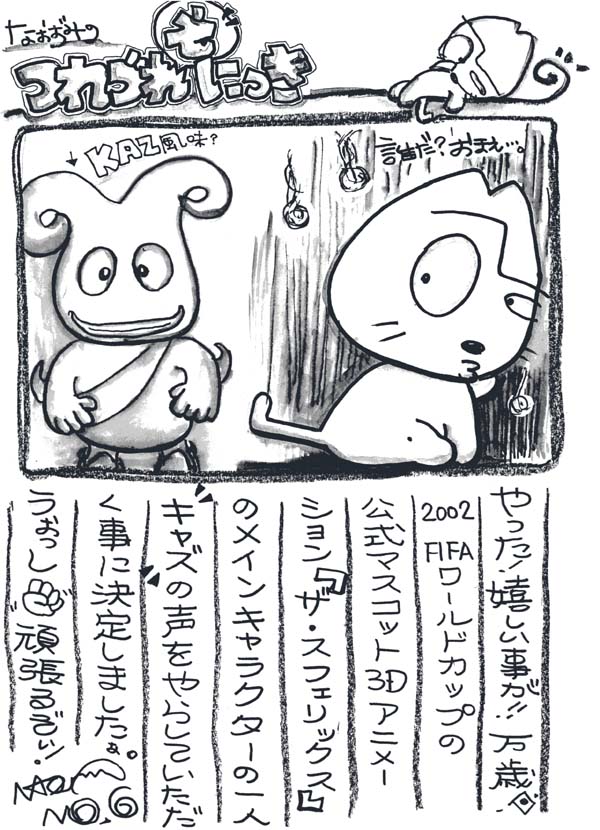 なおおみの
つれづれやもにっき
↓KAZ風味?
誰だ?おまえ…。
やった!嬉しい事が!!万歳!
2002 FIFAワールドカップの
公式マスコット3Dアニメー
ション『ザ・スフェリックス』
のメインキャラクターの一人
キャズの声をやらしていただ
く事に決定しましたぁ。
うぉっし 頑張るぞぃ!
NAO
NO.6